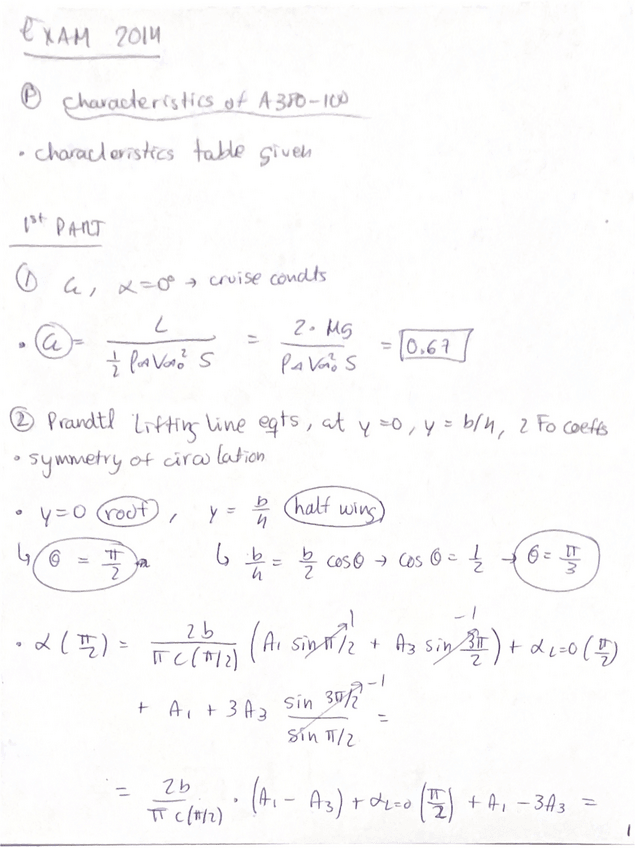 EXAM 2014
Ⓟ characteristics of A380-100
• characteristics table given
1st PART
① CL, α=0° → cruise condts
• CL = L / (1/2 ρ∞ V∞² S) = 2·Mg / (ρ∞ V∞² S) = 0.67
② Prandtl Lifting Line eqts, at y=0, y=b/4, 2 Fo coeffs
• symmetry of circulation
• y=0 (root), y = b/4 (half wing)
↳ θ = π/2 ↳ b/4 = b/2 cosθ → cosθ = 1/2 → θ = π/3
• α(π/2) = 2b / (π c(π/2)) (A₁ sin π/2 + A₃ sin 3π/2) + α_L=0 (π/2)
+ A₁ + 3A₃ sin 3π/2 / sin π/2 =
= 2b / (π c(π/2)) · (A₁ − A₃) + α_L=0 (π/2) + A₁ − 3A₃ =
1